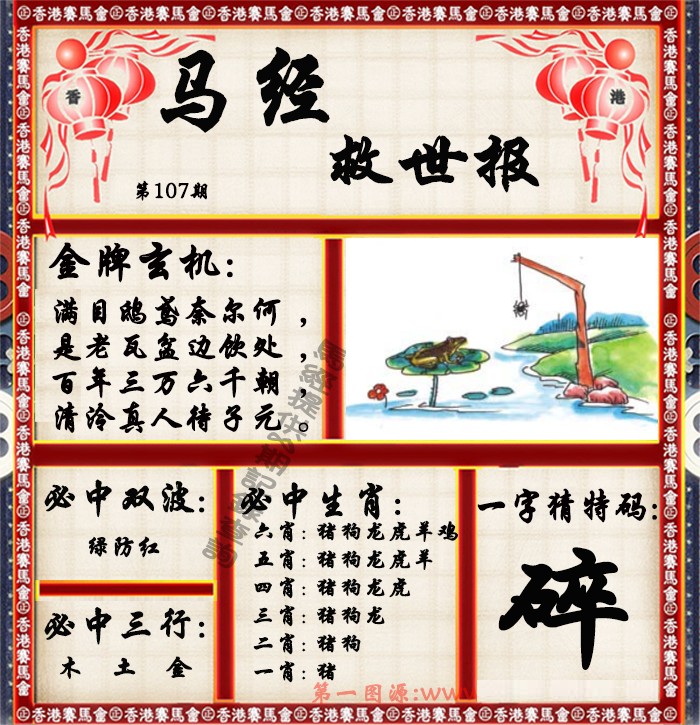 香港賽馬會
香
港
马经
救世报
第107期
金牌玄机：
满目鸱鸢奈尔何，
是老瓦盆边饮处，
百年三万六千朝，
清泠真人待子元。
必中双波：
绿防红
必中三行：
木 土 金
必中生肖：
六肖：猪狗龙虎羊鸡
五肖：猪狗龙虎羊
四肖：猪狗龙虎
三肖：猪狗龙
二肖：猪狗
一肖：猪
一字猜特码：
碎
第一图源:www